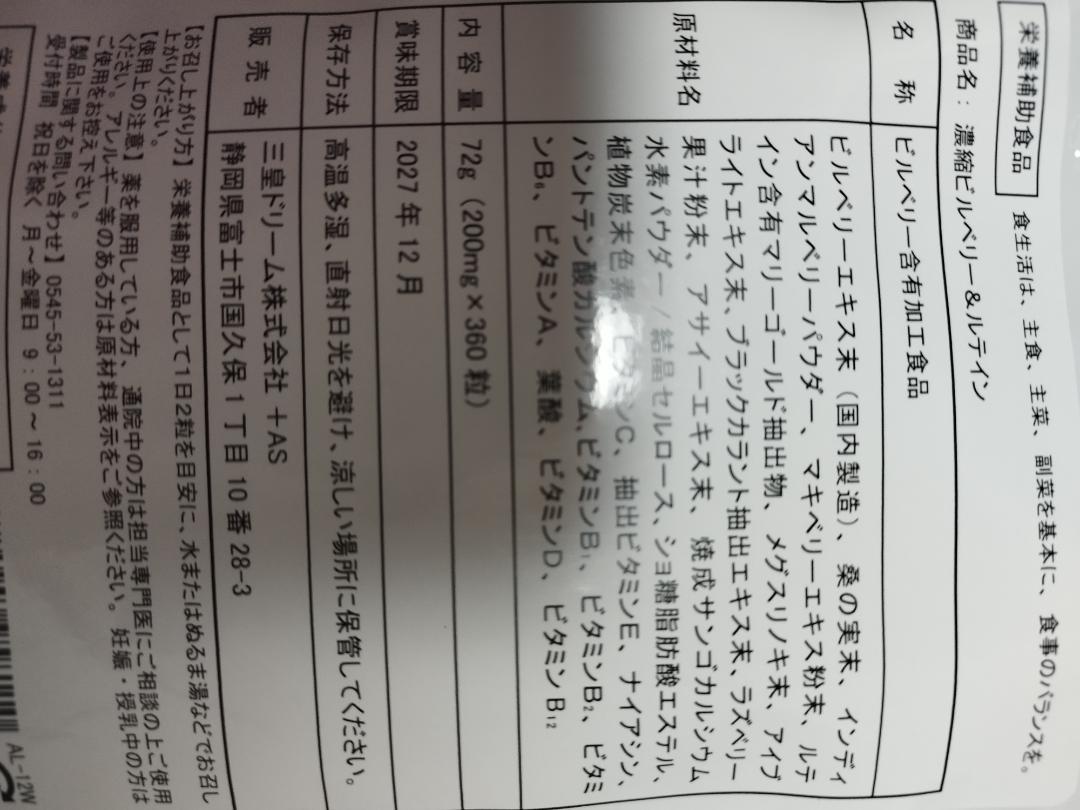 栄養補助食品 食生活は、主食、主菜、副菜を基本に、食事のバランスを。
商品名：濃縮ビルベリー&ルテイン
名 称 ビルベリー含有加工食品
原材料名 ビルベリーエキス末（国内製造）、桑の実末、インディ
アンマルベリーパウダー、マキベリーエキス粉末、ルテ
イン含有マリーゴールド抽出物、メグスリノキ末、アイブ
ライトエキス末、ブラックカラント抽出エキス末、ラズベリー
果汁粉末、アサイーエキス末、焼成サンゴカルシウム
水素パウダー/結晶セルロース、ショ糖脂肪酸エステル、
植物炭末色素、ビタミンC、抽出ビタミンE、ナイアシン、
パントテン酸カルシウム、ビタミンB₁、ビタミンB₂、ビタミ
ンB₆、ビタミンA、葉酸、ビタミンD、ビタミンB₁₂
内 容 量 72g（200mg×360粒）
賞味期限 2027年12月
保存方法 高温多湿、直射日光を避け、涼しい場所に保管してください。
販 売 者 三皇ドリーム株式会社 +AS
静岡県富士市国久保1丁目10番28-3
【お召し上がり方】栄養補助食品として1日2粒を目安に、水またはぬるま湯などでお召し
上がりください。
【使用上の注意】薬を服用している方、通院中の方は担当専門医にご相談の上ご使用
ください。アレルギー等のある方は原材料表示をご参照ください。妊娠・授乳中の方は
ご使用をお控え下さい。
【製品に関する問い合わせ】0545-53-1311
受付時間 祝日を除く 月～金曜日 9：00～16：00
AL-12W